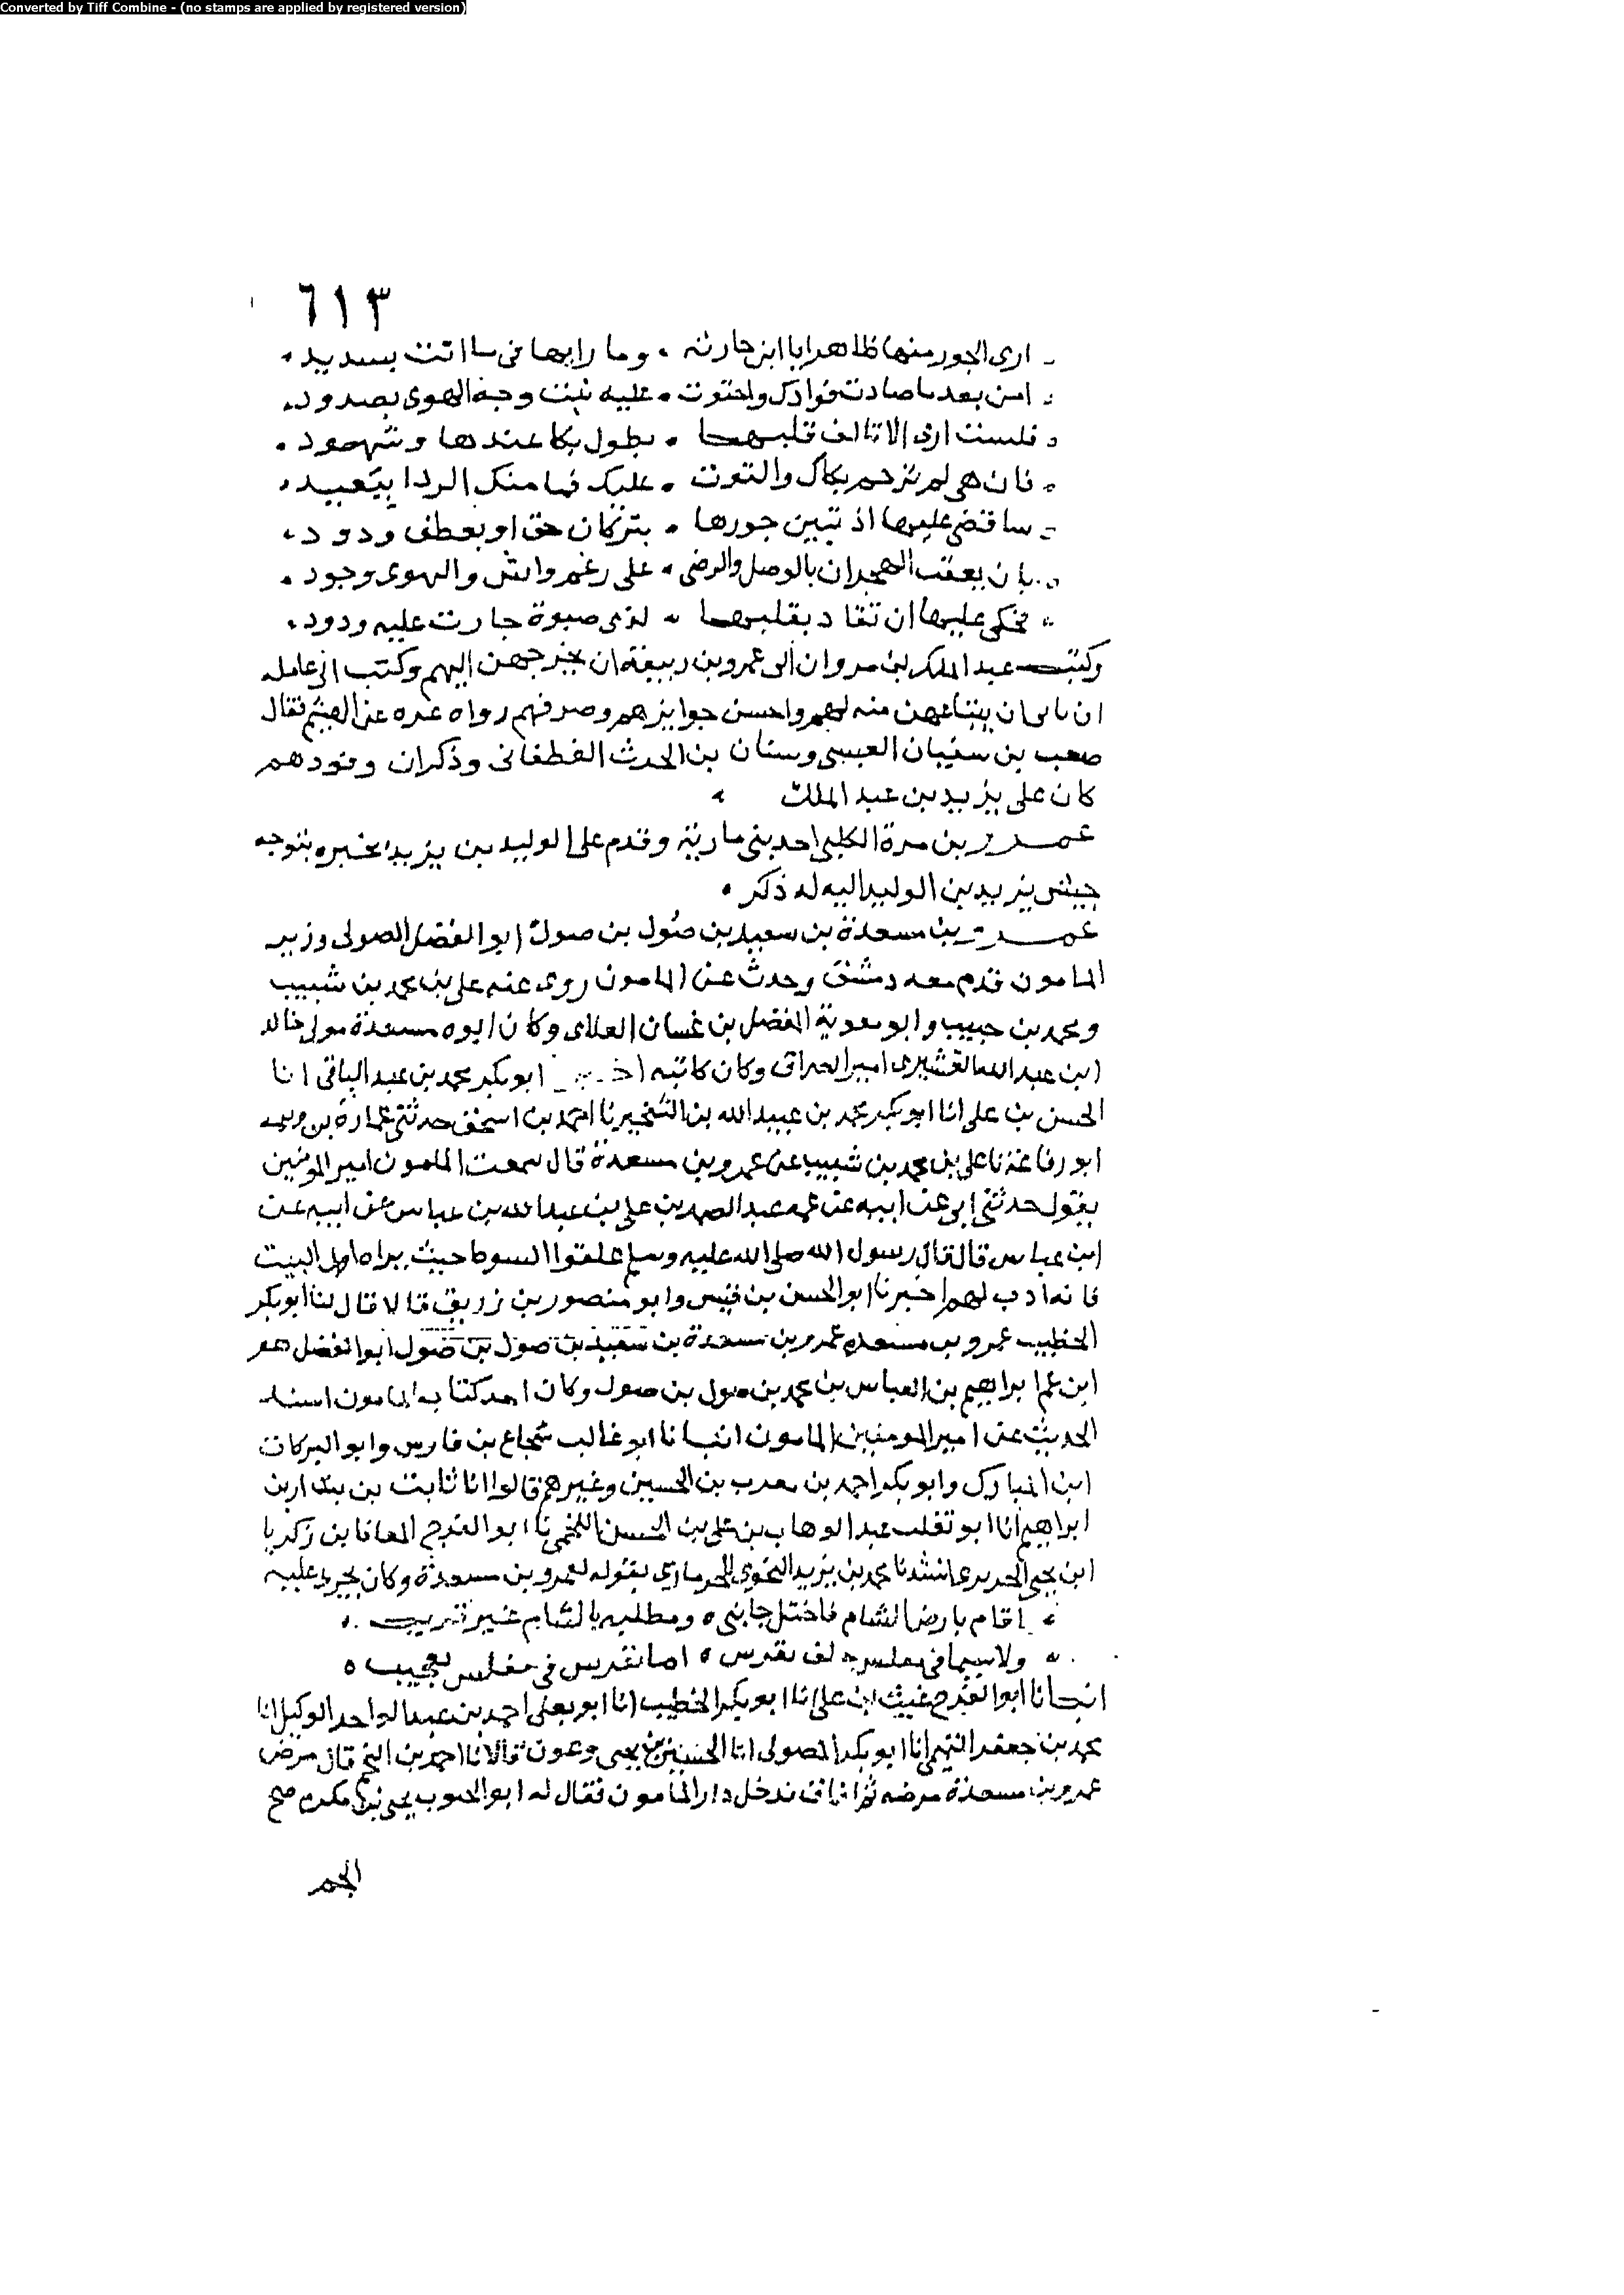 Converted by Tiff Combine - (no stamps are applied by registered version)
٦١٣
ارى الجور منها ظاهرا يا ابن حارثه وما رايها فى ما اتت بسديد
امن بعد ما صادت فوادك واحتوت عليه ثنت وجه الهوى بصدود
فلست ارى الا تالف قلبها بطول بكا عندها وشهود
فان هى لم ترحم بكاك والتوت عليك فما منك الردا ببعيد
ساقضى عليها اذ تبين جورها بترك حق او بعطف ودود
بان يعقب الهجران بالوصل والرضى على رغم واش والهوى وجود
فحكمى عليها ان تقاد بقلبها لذى صبوة جارت عليه ودود
وكتب عبد الملك بن مروان الى عمرو بن ربيعة ان يخرجهن اليهم وكتب الى عامله
ان يبتاعهن منه لهم واحسن جوايزهم وصرفهم رواه غيره عن الهيثم فقال
صعب بن سفيان العبسى وسنان بن الحرث الغطفانى وذكر ان وفودهم
كان على يزيد بن عبد الملك
عمرو بن مرة الكلبى احد بنى مارية وقدم على الوليد بن يزيد يخبره بتوجه
جيش يزيد بن الوليد اليه له ذكر
عمرو بن مسعدة بن سعيد بن صول بن صول ابو الفضل الصولى وزير
المامون قدم معه دمشق وحدث عن المامون روى عنه على بن محمد بن شبيب
ومحمد بن حبيب وابو معوية المفضل بن غسان الغلابى وكان ابوه مسعدة مولى خالد
ابن عبد الله القشيرى امير العراق وكان كاتبه ابو بكر محمد بن عبد الباقى انا
الحسن بن على انا ابو بكر محمد بن عبيد الله بن الشخير نا احمد بن اسحق حدثنى عمارة بن وثيمه
ابو رفاعة نا على بن محمد بن شبيب عن عمرو بن مسعدة قال سمعت المامون امير المومنين
يقول حدثنى ابى عن ابيه عن عمه عبد الصمد بن على بن عبد الله بن عباس عن ابيه عن
ابن عباس قال قال رسول الله صلى الله عليه وسلم علقوا السوط حيث يراه اهل البيت
فانه ادب لهم اخبرنا ابو الحسن بن قبيس وابو منصور بن زريق قالا قال لنا ابو بكر
الخطيب عمرو بن مسعده عمرو بن مسعدة بن سعيد بن صول بن صول ابو الفضل هو
ابن عم ابراهيم بن العباس بن محمد بن صول بن صول وكان احد كتاب المامون اسند
الحديث عن امير المومنين المامون انبانا ابو غالب شجاع بن فارس وابو البركات
ابن المبارك وابو بكر احمد بن بن الحسين وغيرهم قالوا انا ثابت بن بندار بن
ابراهيم انا ابو تغلب عبد الوهاب بن على بن الحسن اللخمى نا ابو الفرج المعافا بن زكريا
ابن يحيى الجريرى انشدنا محمد بن يزيد النحوى للحرمازى يقوله لعمرو بن مسعدة وكان يجرى عليه
اقام بارض الشام فاختل جانبى ومطلبه بالشام غير قريب
ولا سيما فى مفلس حلف نقرس اما نقرس فى مفلس بعجيب
انبانا ابو الفرج غيث بن على انا ابو بكر الخطيب انا ابو يعلى احمد بن عبد الواحد الوكيل انا
محمد بن جعفر التميمى انا ابو بكر الصولى انا الحسين بن يحيى وعون قالا نا احمد بن قال مرض
عمرو بن مسعدة مرضه ثم افاق فدخل دار المامون فقال له ابو الجنوب يحيى